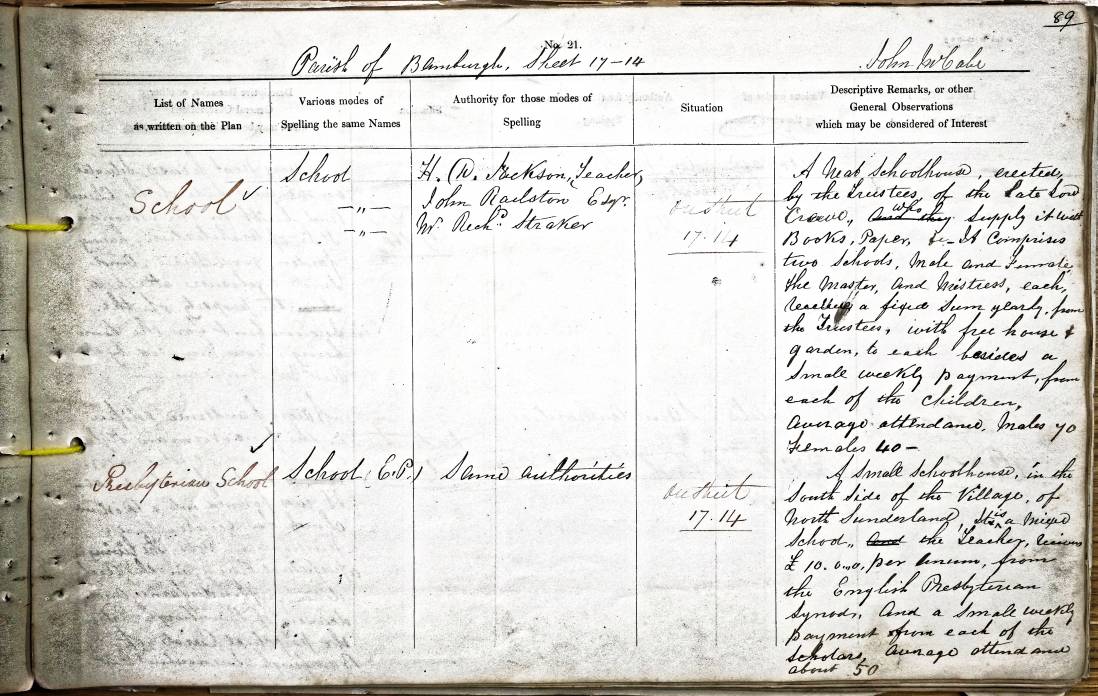 89
No. 21.
Parish of Bamburgh, Sheet 17-14
John McCabe
List of Names
as written on the Plan
Various modes of
Spelling the same Names
Authority for those modes of
Spelling
Situation
Descriptive Remarks, or other
General Observations
which may be considered of Interest
School
School
-"-
-"-
H. D. Jackson, Teacher,
John Railston Esqr.
Mr. Richd. Straker
On sheet
17.14
A Neat Schoolhouse, erected
by the Trustees, of the Late Lord
Crewe, and they who Supply it with
Books, Paper, &c- It Comprises
two Schools, Male and Female,
the Master, and Mistress, each,
a fixed Sum yearly, from
the Trustees, with free house &
garden, to each besides a
Small weekly payment, from
each of the Children,
Average attendance. Males 70
Females 40-
Presbyterian School
School (E.P.)
Same authorities
On sheet
17.14
A Small Schoolhouse, in the
South Side of the Village, of
North Sunderland, It is a Mixed
School, And the Teacher, receives
£10.0.0, per Annum, from
the English Presbyterian
Synods, And a Small weekly
payment from each of the
Scholars, average attendance
about 50